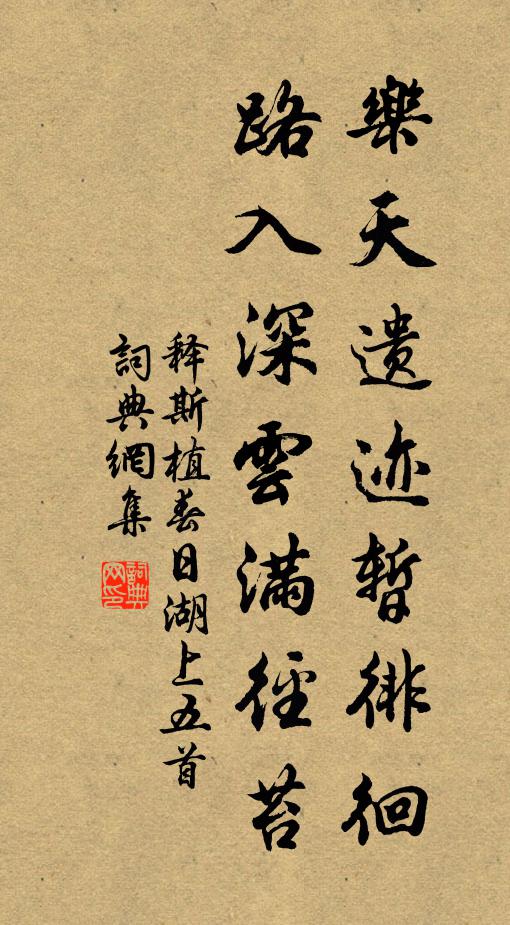 樂天遺迹暫徘徊
路入深雲滿徑苔
释斯植春日湖上五首
詞典網集
詞典网印